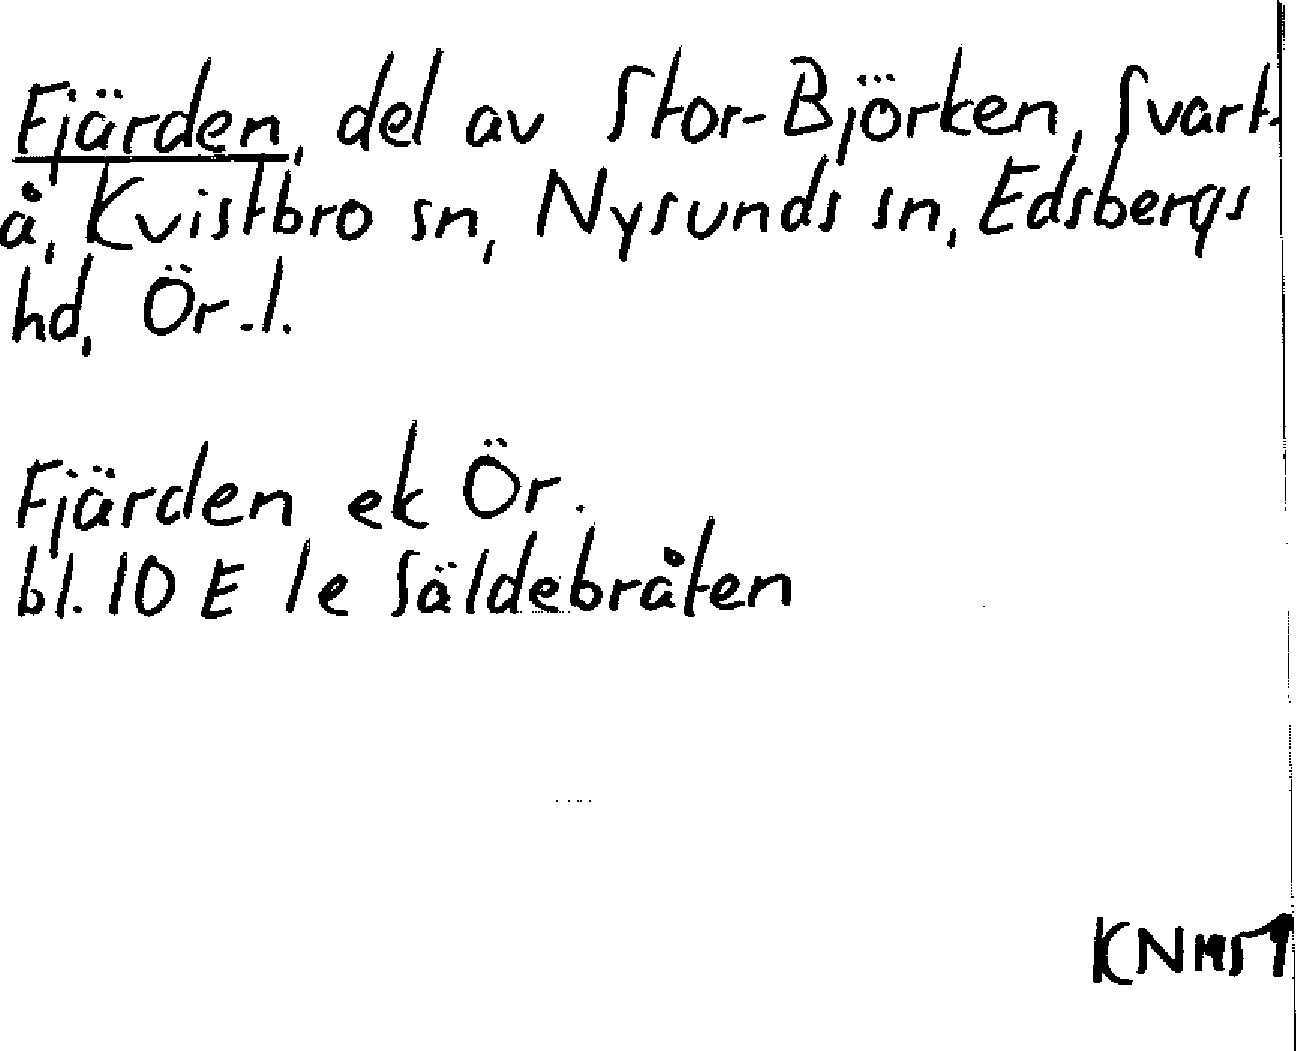 Fjärden, del av Stor-Björken, Svart-
å, Kvistbro sn, Nysunds sn, Edsbergs
hd, Ör.l.
Fjärden ek Ör.
bl. 10 E 1e Säldebråten